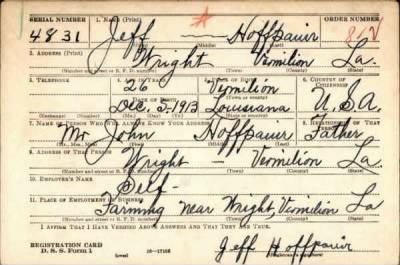 SERIAL NUMBER 1. NAME (Print) ORDER NUMBER
4831 Jeff — Hoffpauir
2. ADDRESS (Print)
Wright Vermilion La.
(Number and street or R. F. D. number) (Town) (County) (State)
3. TELEPHONE 4. AGE IN YEARS 5. PLACE OF BIRTH 6. COUNTRY OF CITIZENSHIP
26 Vermilion
DATE OF BIRTH
Dec. 5-1913 Louisiana U.S.A.
7. NAME OF PERSON WHO WILL ALWAYS KNOW YOUR ADDRESS 8. RELATIONSHIP OF THAT PERSON
Mr John Hoffpauir Father
9. ADDRESS OF THAT PERSON
Wright — Vermilion La
(Number and street or R. F. D. number) (Town) (County) (State)
10. EMPLOYER'S NAME
Self-
11. PLACE OF EMPLOYMENT OR BUSINESS
Farming near Wright, Vermilion La
(Number and street or R. F. D. number) (Town) (County) (State)
I AFFIRM THAT I HAVE VERIFIED ABOVE ANSWERS AND THAT THEY ARE TRUE.
REGISTRATION CARD
D. S. S. Form 1 (over) Jeff Hoffpauir